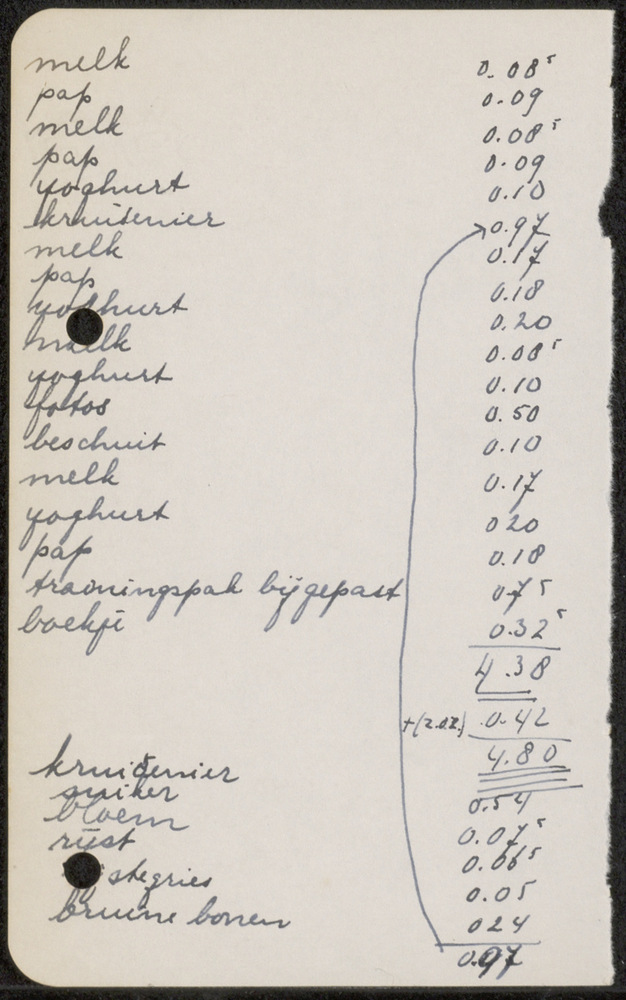 melk 0.08⁵
pap 0.09
melk 0.08⁵
pap 0.09
yoghurt 0.10
kruidenier 0.97
melk 0.17
pap 0.18
yoghurt 0.20
melk 0.08⁵
yoghurt 0.10
fotos 0.50
beschuit 0.10
melk 0.17
yoghurt 0 20
pap 0.18
trainingspak bijgepast 0.75
boekje 0.32⁵
4.38
+(z.o.z.) 0.42
4.80
kruidenier
suiker 0.54
bloem 0.07⁵
rijst 0.06⁵
stegries 0.05
bruine bonen 0 24
0.97